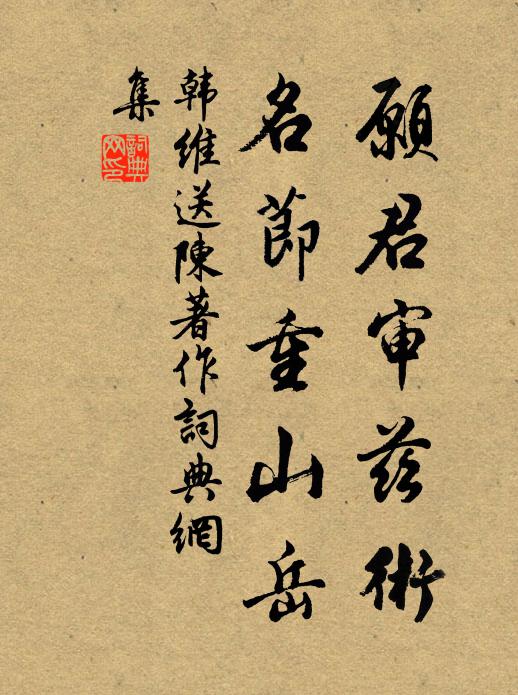 願君审茲術
名節重山岳
韓維送陳著作詞典網
集
詞典网印